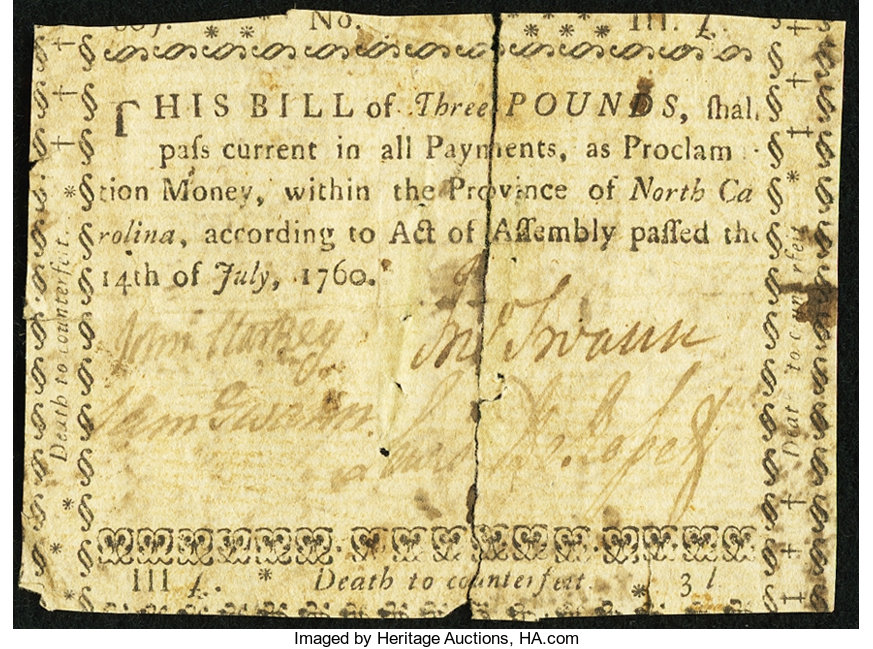 No. III l.
THIS BILL of Three POUNDS, ſhal
paſs current in all Payments, as Proclam
tion Money, within the Province of North Ca
rolina, according to Act of Aſſembly paſſed the
14th of July, 1760.
John Starkey Jnº Swann
Sam Swann. Lewis De Roſſet
Death to counterfeit.
Death to counterfeit
III l. * Death to counterfeit * 3 l
Imaged by Heritage Auctions, HA.com